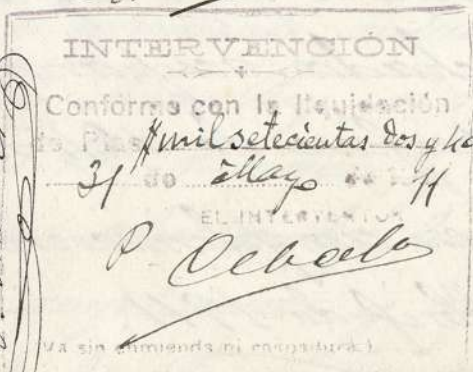 INTERVENCIÓN
Conforme con la liquidación
de Ptas mil setecientas dos y
31 de Mayo de 11
EL INTERVENTOR
P.
Va sin enmienda ni raspadura